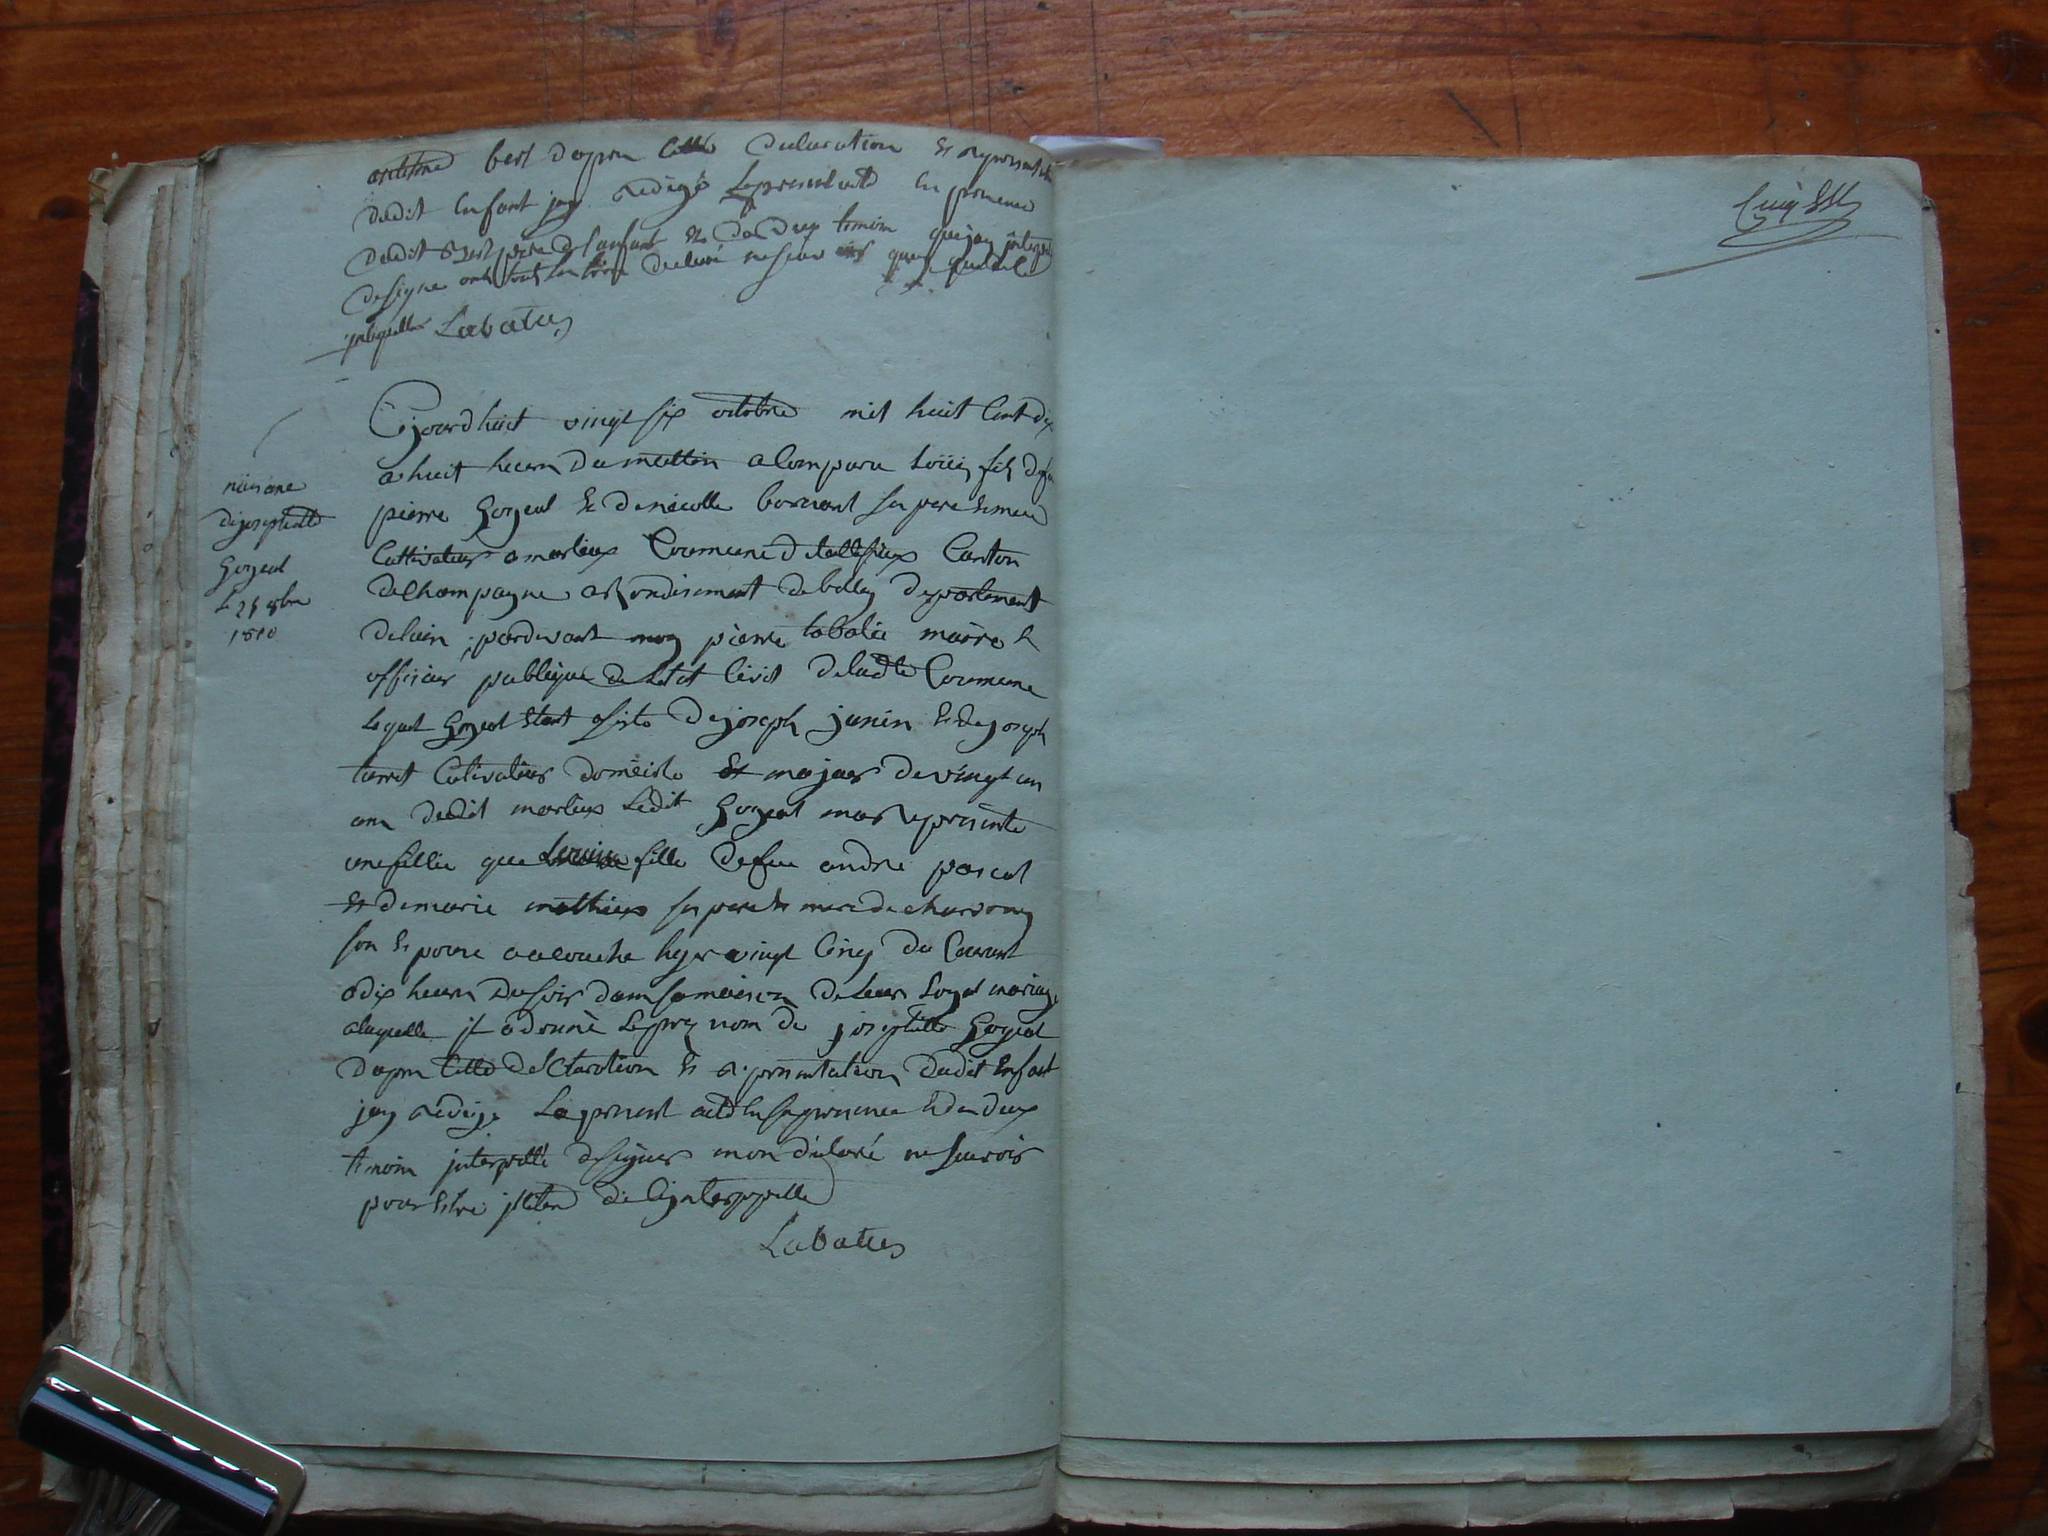 antelme berl dapres cette declaration et representation
dudit enfant jay redigé le present acte en presence
dudit berl pere de lenfant et des deux temoin que jay interpelle
de signer ont tout declaré ne savoir
interpeller Labatie
Ce jourdhuit vingt six octobre mil huit cent dix
a huit heures du mattin a comparu Loüis fils de feu
pierre Gojeat et de nicolle bornant ses pere et mere
Cultivateur a marlieux Commune de tallissieux Canton
de Champagne arrondisement de belley departement
de lain, pardevant moy pierre labatie maire et
officier publique de letat civil de ladte Commune
lequel Gojeat etant assisté de joseph janin et de joseph
tarret Cultivateur domicilie et majeur de vingt un
ans dudit marlieux ledit Gojeat mas represinté
une fillie que Louise fille de feu andre pascal
et de marie mathieux ses pere et mere de charvoney
son epouse a accouche hyer vingt cinq du Courant
a dix heures du soir dans sa maison de leur loyal mariage
a laquelle il a donné le pre nom de josephtte Gojeat
dapres cette declaration et representation dudit enfant
jay redige le present acte en sa presence et des deux
temoin interpellé de signer mon déclaré ne scavoir
pour etre illetere de ce interppelle
Labatie
naisance
de josephtte
Gojeat
le 25 8bre
1810